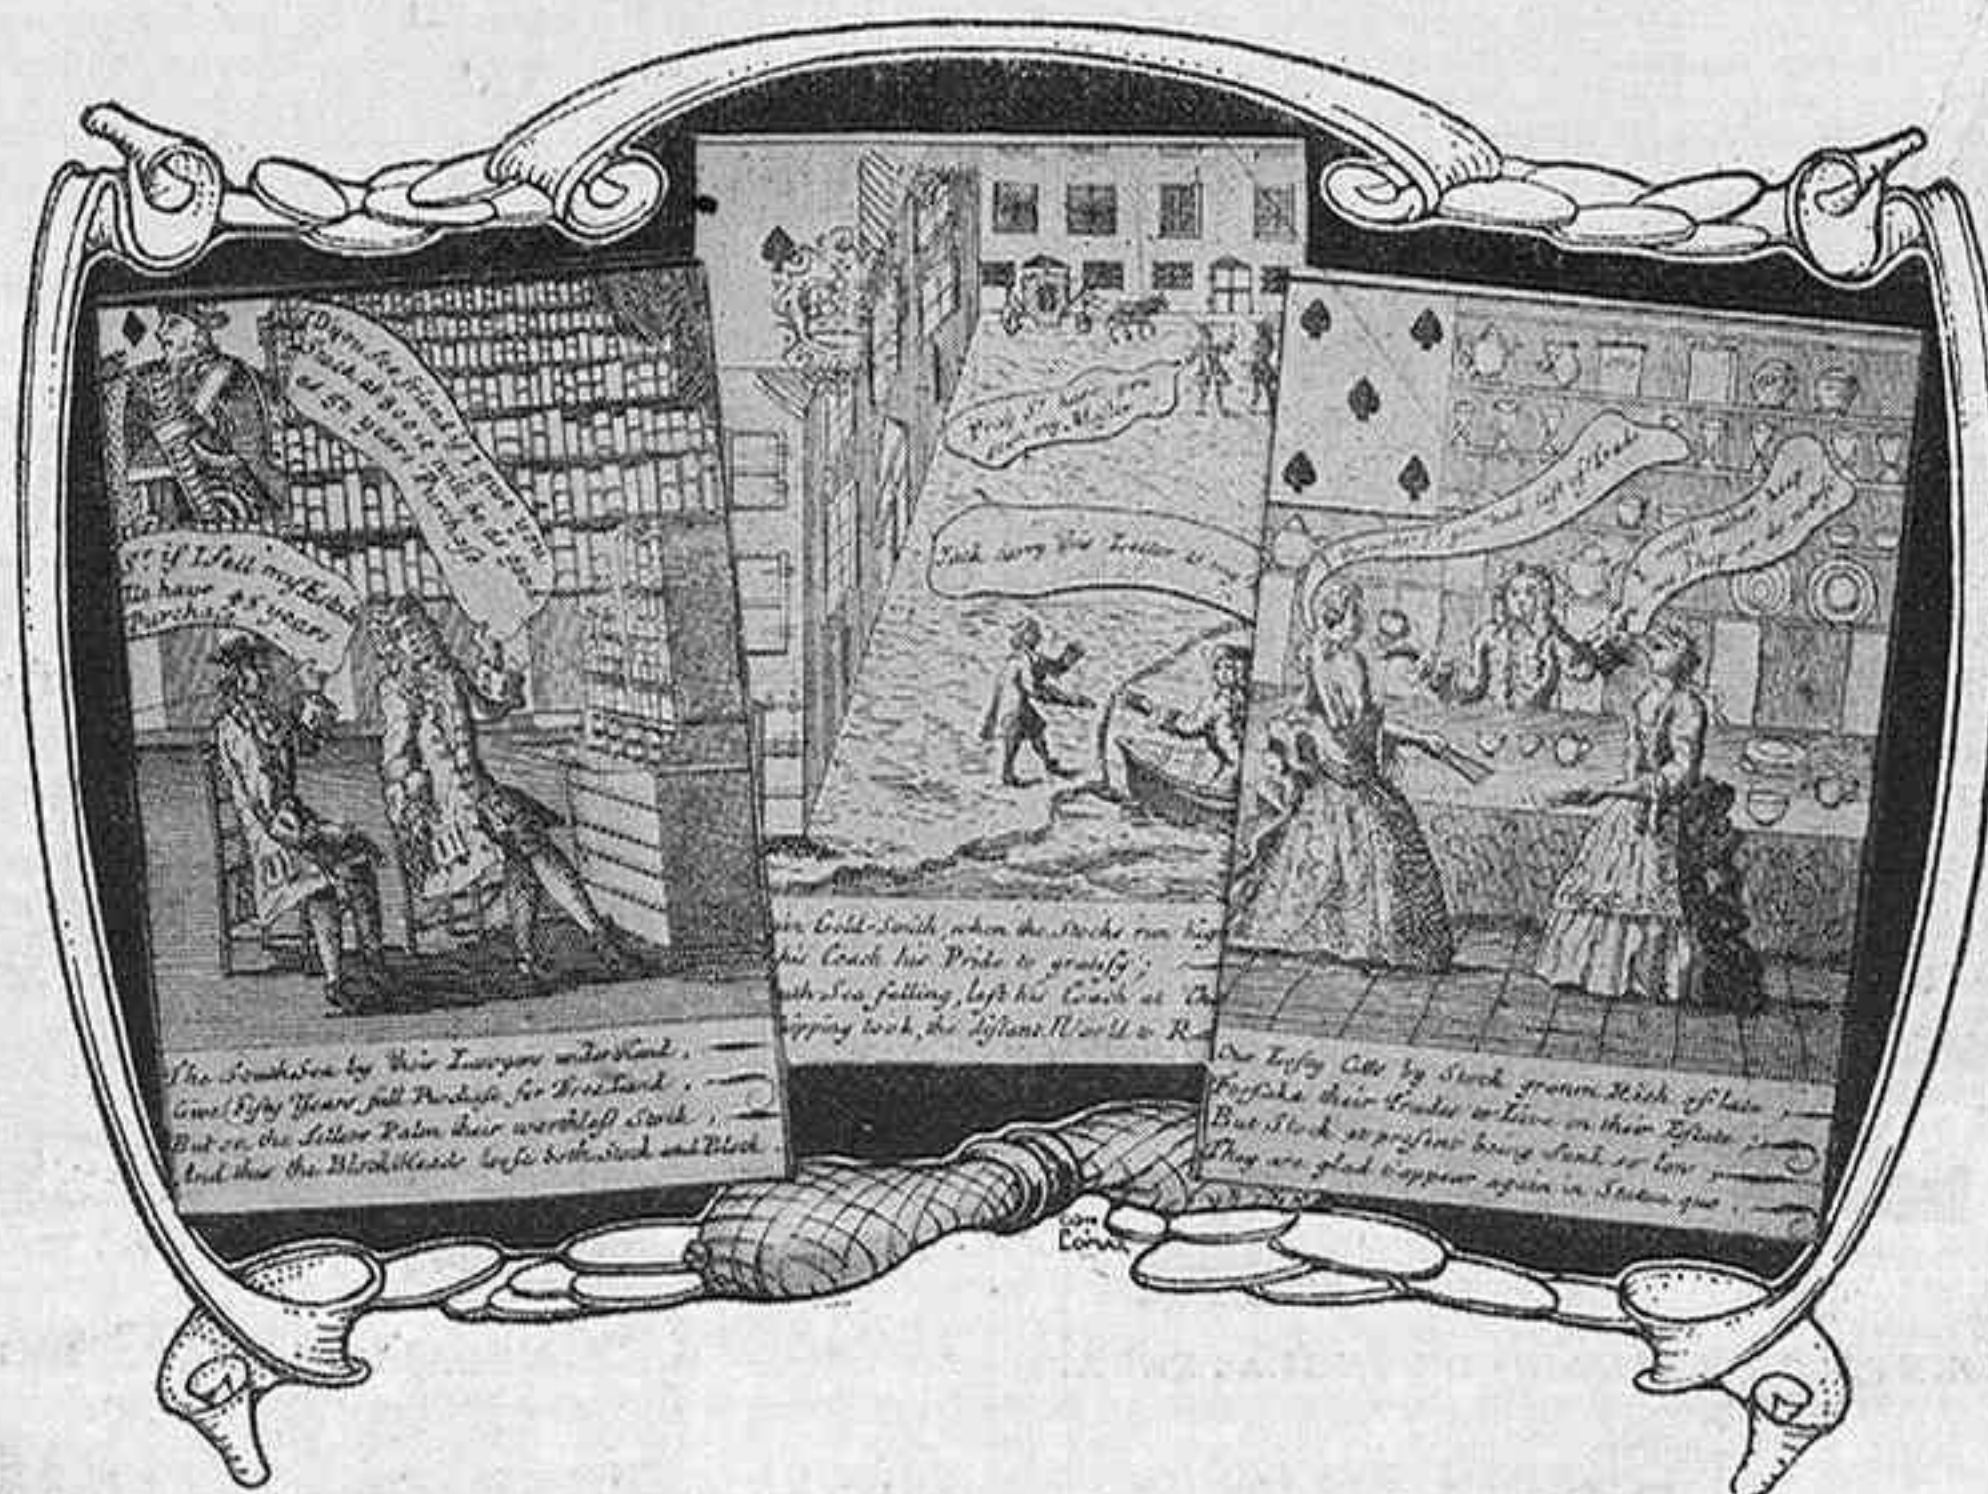 D'you see friend I give you
Stock at 800 it will be as good
as 50 years Purchase
Sr if I sell my Estate
Ile have 45 years
Purchase
The South Sea by their Lawyers under hand,
Give Fifty Years full Purchase for Free Land,
But on the Sellers Palm their worthless Stock,
And thus the Block Heads loose both Stock and Block
Pray Sr have you
my Master
Jack carry this Letter to my
Gold-Smith, when the Stocks run high
his Coach his Pride to gratify;
th Sea falling, left his Coach at
ipping took, the distant World to R
left of Trade
I must again keep
Our Lofty Citts by Stock grown Rich of late,
Forsake their Trades to Live on their Estate;
But Stock at present being Sunk so low
They are glad t'appear again in Statu quo.